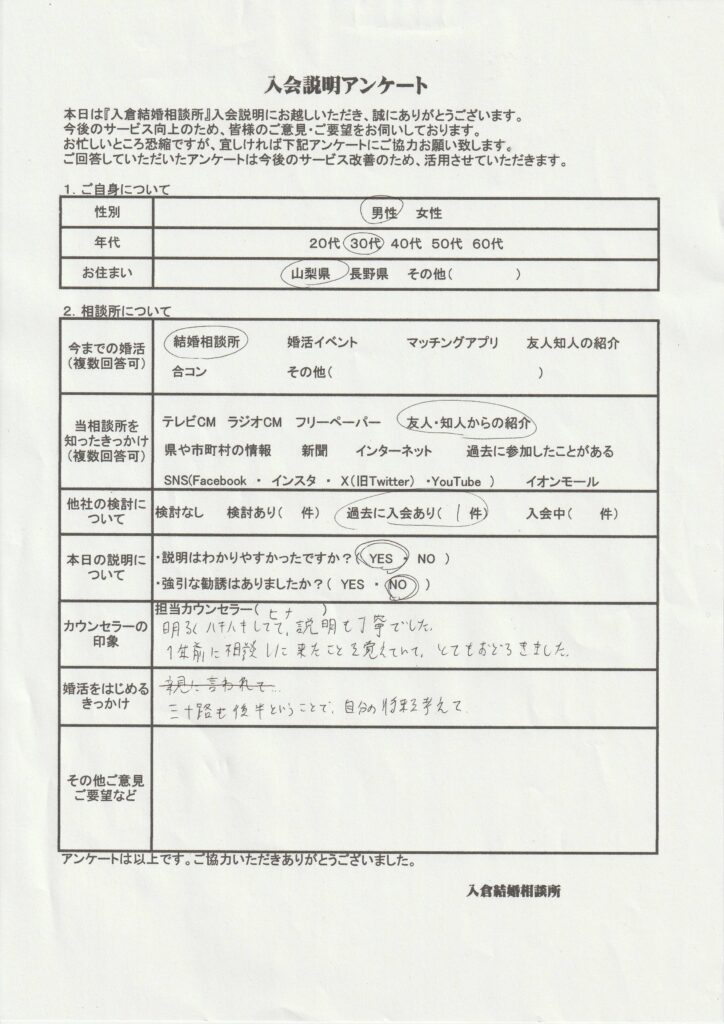 入会説明アンケート
本日は『入倉結婚相談所』入会説明にお越しいただき、誠にありがとうございます。
今後のサービス向上のため、皆様のご意見・ご要望をお伺いしております。
お忙しいところ恐縮ですが、宜しければ下記アンケートにご協力お願い致します。
ご回答していただいたアンケートは今後のサービス改善のため、活用させていただきます。
1．ご自身について
性別 男性 女性
年代 20代 30代 40代 50代 60代
お住まい 山梨県 長野県 その他( )
2．相談所について
今までの婚活
(複数回答可)
結婚相談所 婚活イベント マッチングアプリ 友人知人の紹介
合コン その他( )
当相談所を
知ったきっかけ
(複数回答可)
テレビCM ラジオCM フリーペーパー 友人・知人からの紹介
県や市町村の情報 新聞 インターネット 過去に参加したことがある
SNS(Facebook ・ インスタ ・ X(旧Twitter) ・YouTube ) イオンモール
他社の検討に
ついて
検討なし 検討あり( 件) 過去に入会あり( 1 件) 入会中( 件)
本日の説明に
ついて
・説明はわかりやすかったですか？( YES ・ NO )
・強引な勧誘はありましたか？( YES ・ NO )
カウンセラーの
印象
担当カウンセラー( ヒナ )
明るくハキハキしてて、説明も丁寧でした。
1年前に相談しに来たことを覚えていて、とてもおどろきました。
婚活をはじめる
きっかけ
親に言われて
三十路も後半ということで、自分の将来を考えて
その他ご意見
ご要望など
アンケートは以上です。ご協力いただきありがとうございました。
入倉結婚相談所